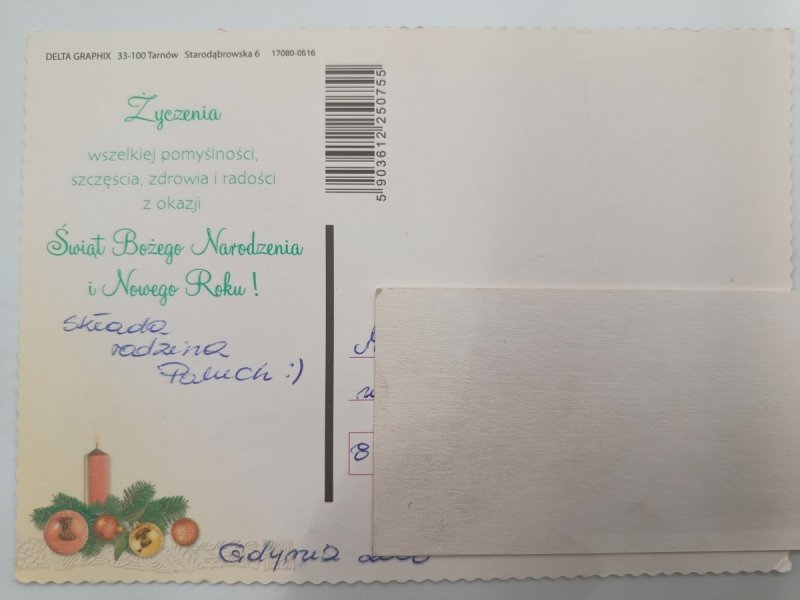 DELTA GRAPHIX 33-100 Tarnów Starodąbrowska 6 17080-0516
5 903612 250755
Życzenia
wszelkiej pomyślności,
szczęścia, zdrowia i radości
z okazji
Świąt Bożego Narodzenia
i Nowego Roku !
Składa
rodzina
Paluch :)
8
Gdynia